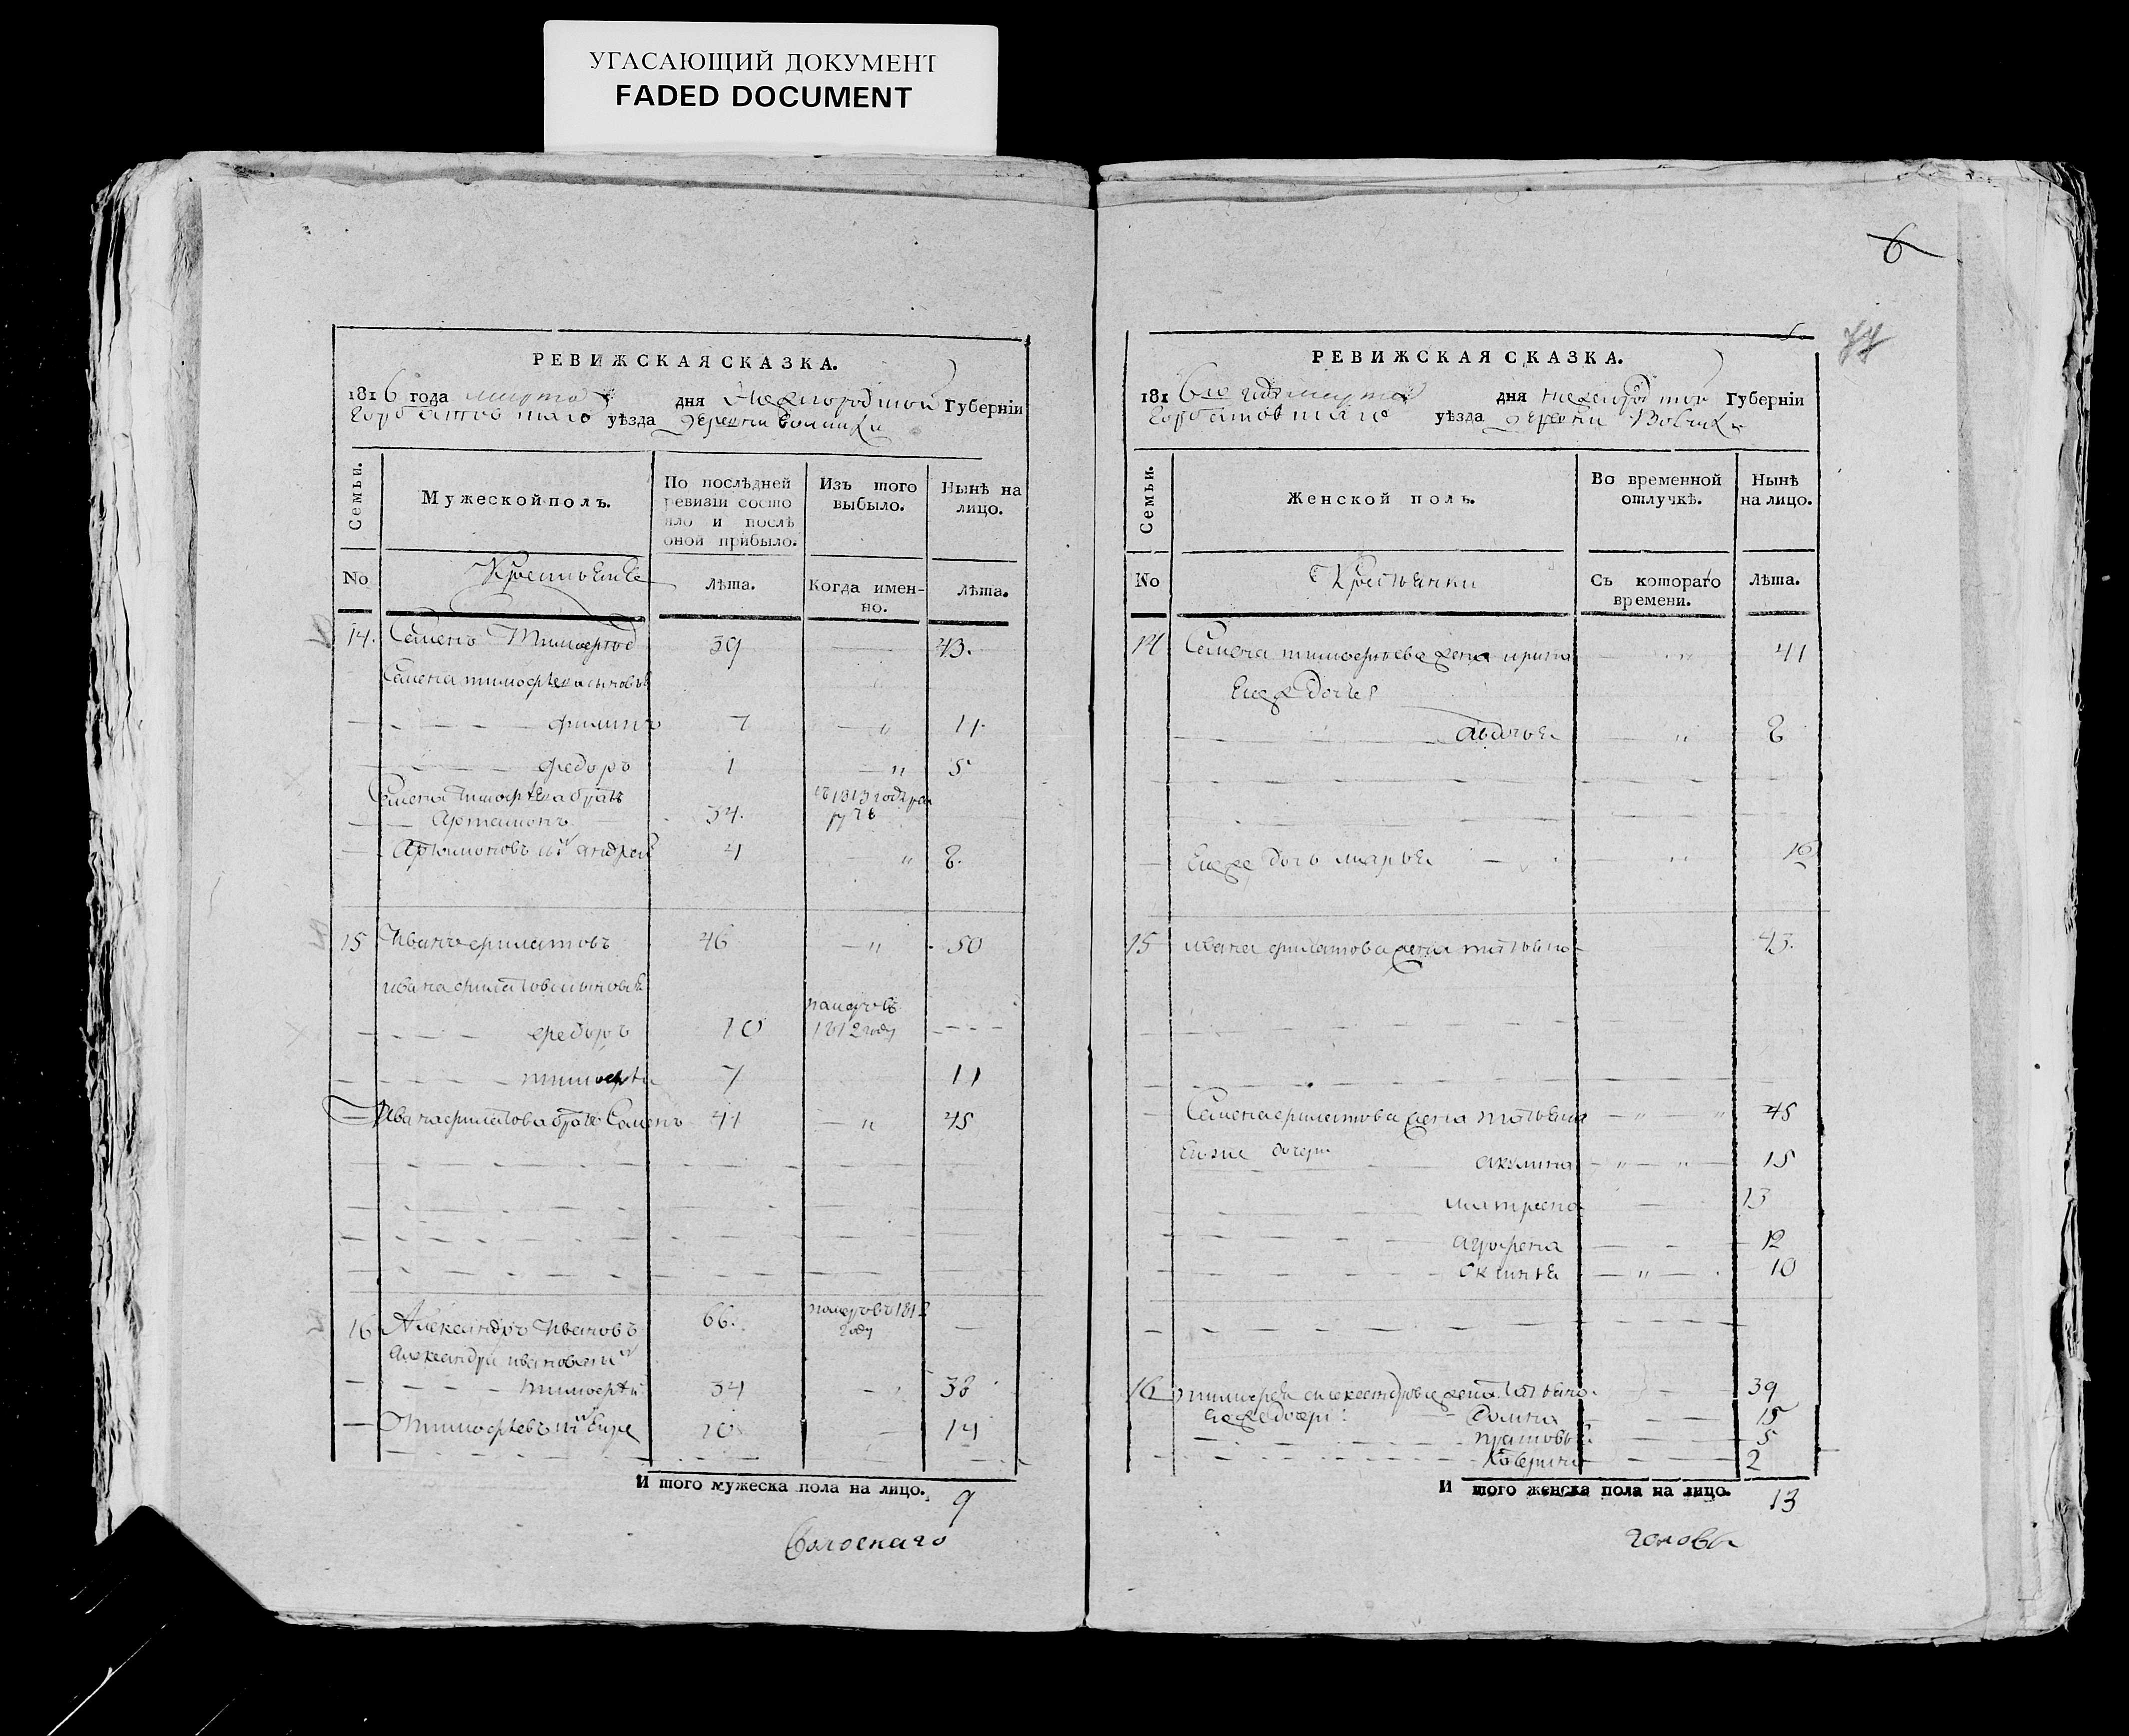 УГАСАЮЩИЙ ДОКУМЕНТ
FADED DOCUMENT
РЕВИЖСКАЯ СКАЗКА.
1816 года марта дня Нижегородской Губернїи
Горбатовскаго уѣзда деревни
Семьи.
Мужеской полъ.
По послѣдней ревизїи состояло и послѣ оной прибыло.
Изъ того выбыло.
Нынѣ на лицо.
No
Крестьяне
лѣта.
Когда именно.
лѣта.
14. Семенъ Тимофеевъ 39 43.
Семена тимофеева сыновья
филипъ 7 " 11.
федоръ 1 " 5
Семена тимофеева братъ
Артамонъ 34. въ 1813 году
Артамоновъ сынъ андрей 4 " 8.
15 Иванъ филатовъ 46 " 50
ивана филатова сыновья
федоръ 10 померъ въ 1812 году
тимофей 7 11
Ивана филатова братъ Семенъ 41 " 45
16 Александръ Ивановъ 66. померъ въ 1812 году
александра иванова сынъ
тимофей 34 " 38
тимофеевъ сынъ 10 14
И того мужеска пола на лицо. 9
6
77
РЕВИЖСКАЯ СКАЗКА.
1816го года марта дня нижегородской Губернїи
Горбатовскаго уѣзда деревни
Семьи.
Женской полъ.
Во временной отлучкѣ.
Нынѣ на лицо.
No
Крестьянки
Съ котораго времени.
лѣта.
14 Семена тимофеева жена ирина " 41
Ево ж дочь
авдотья " 8
Ево же дочь марья " 16
15 ивана филатова жена татьяна 43.
Семена филатова жена татьяна " " 45
Ево же дочери
акулина " " 15
матрена 13
аграфена 12
аксинья " 10
16 тимофея александрова жена татьяна 39
дочери: домна 15
прасковья 5
катерина 2
И того женска пола на лицо. 13
головы